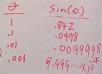 θ Sin(θ)
1 .842
.1 .0998
.01 .0099998
.001 9.999